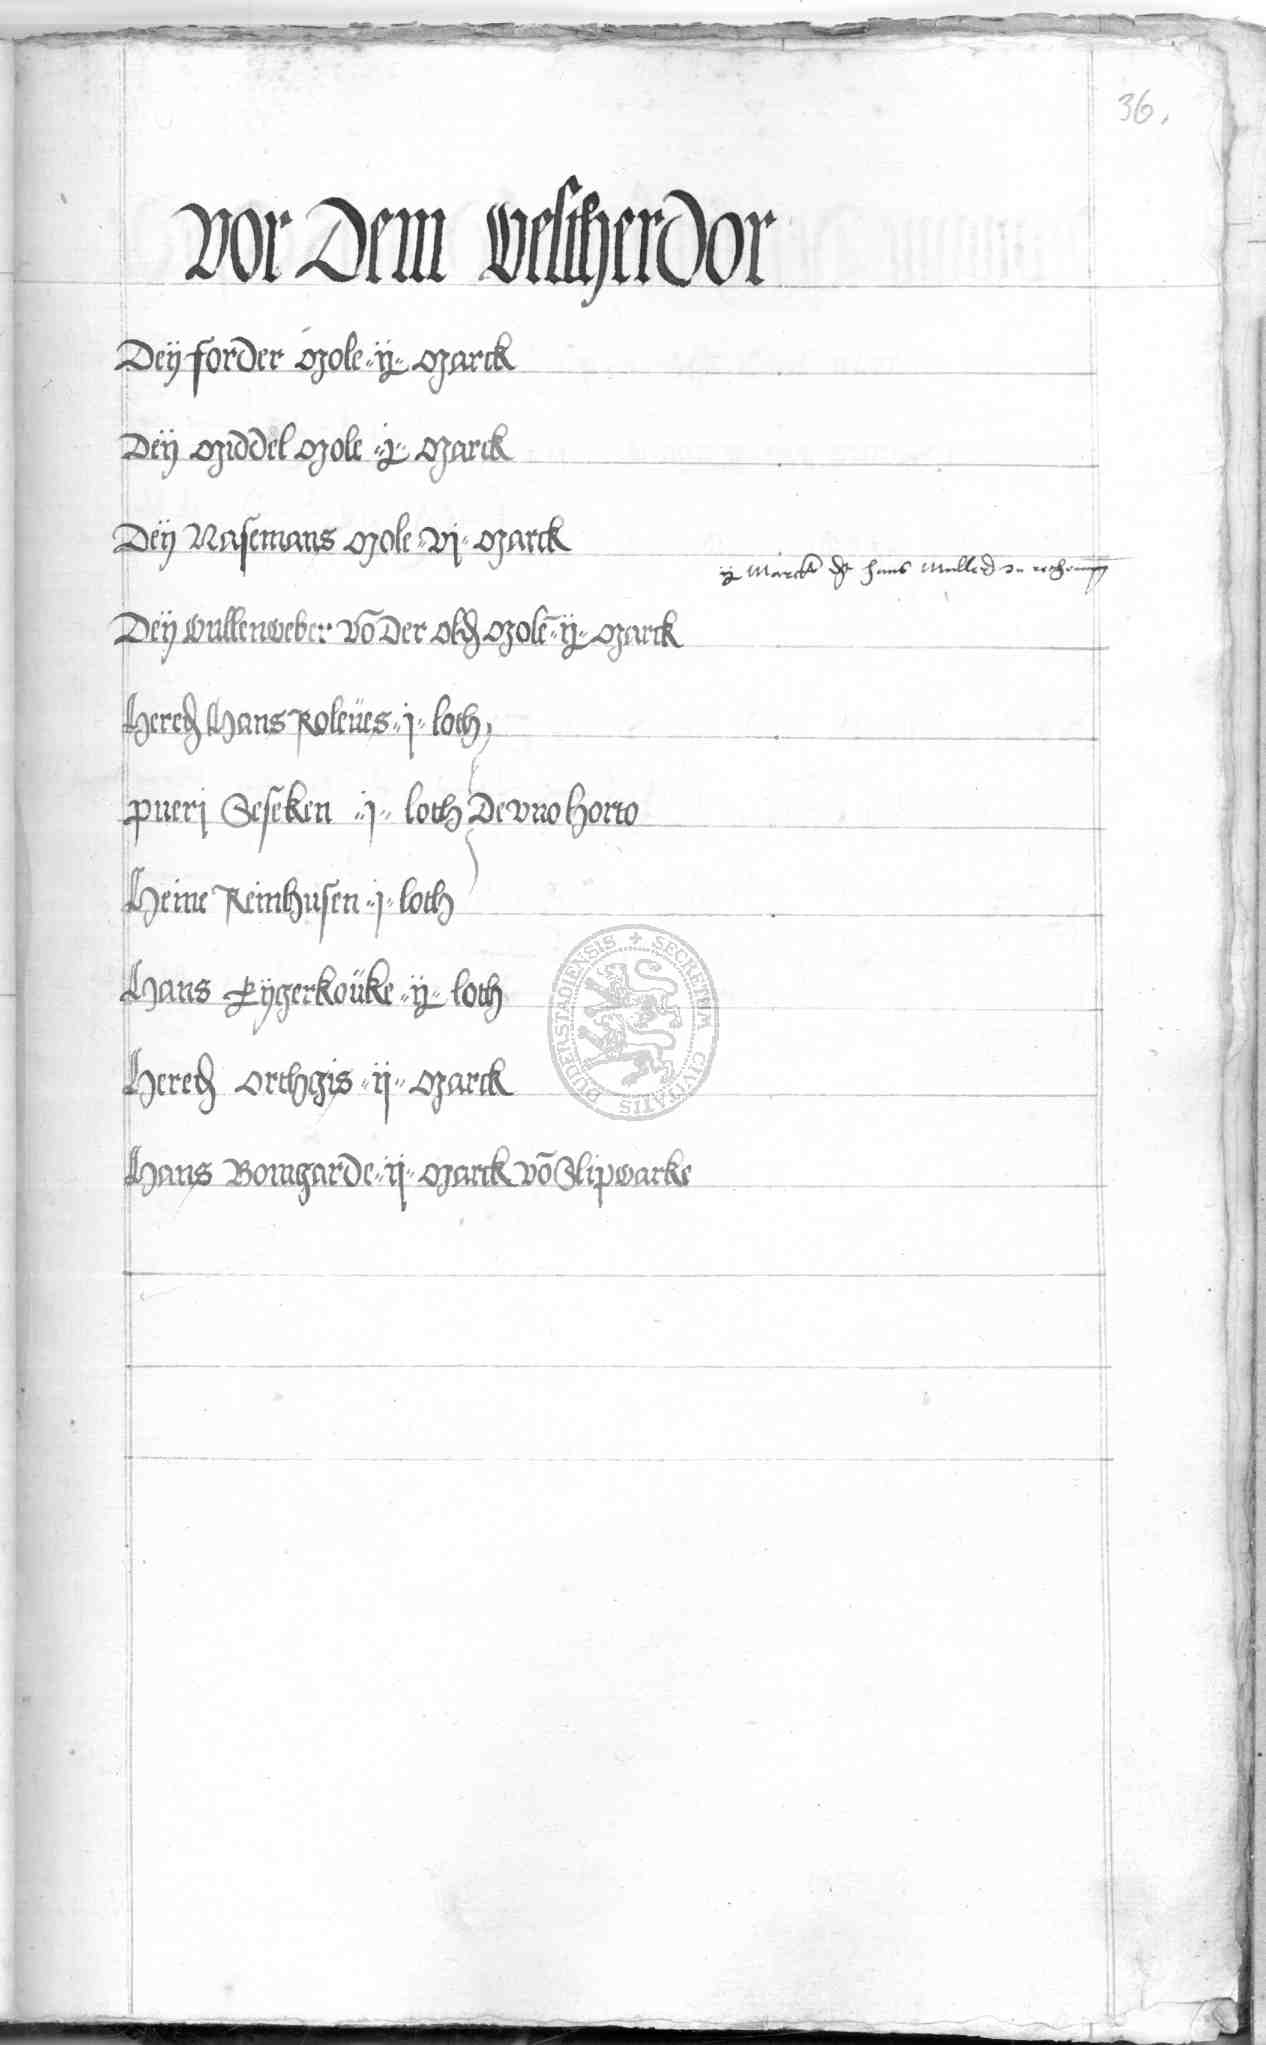 36.
Vor Dem Westherdor
Deÿ forder Mole ·ij· Marck
Deÿ Middel Mole ·j· Marck
Deÿ Nasemans Mole ·vj· Marck
ij Marck hans
Deÿ Wullenweber vō der Mole ·ij· Marck
Hered Hans Roleües ·j· loth
pueri Seseken ·j· loth De vno horto
Heine Reinhusen ·j· loth
Hans ·ij· loth
Hered Orthgis ·ij· Marck
Hans Bomgarde ·ij· Marck vō Slipwarke
SECRETUM CIVITATIS DUDERSTADIENSIS